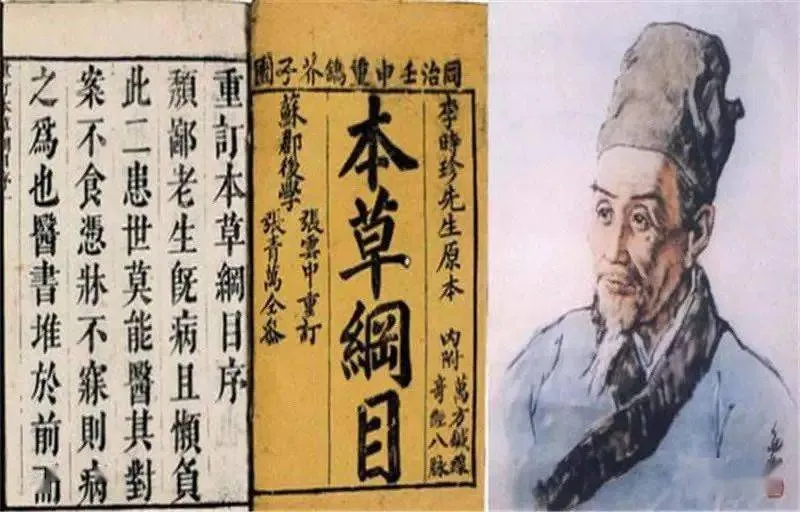 重訂本草綱目序
頹鄙老生旣病且懶負
此二患世莫能醫其對
案不食憑牀不寐則病
之爲也醫書堆於前而
同治壬申重鐫芥子園
李時珍先生原本
内附
萬方鍼線
奇經八脉
本草綱目
蘇郡後學
張雲中重訂
張青萬仝參